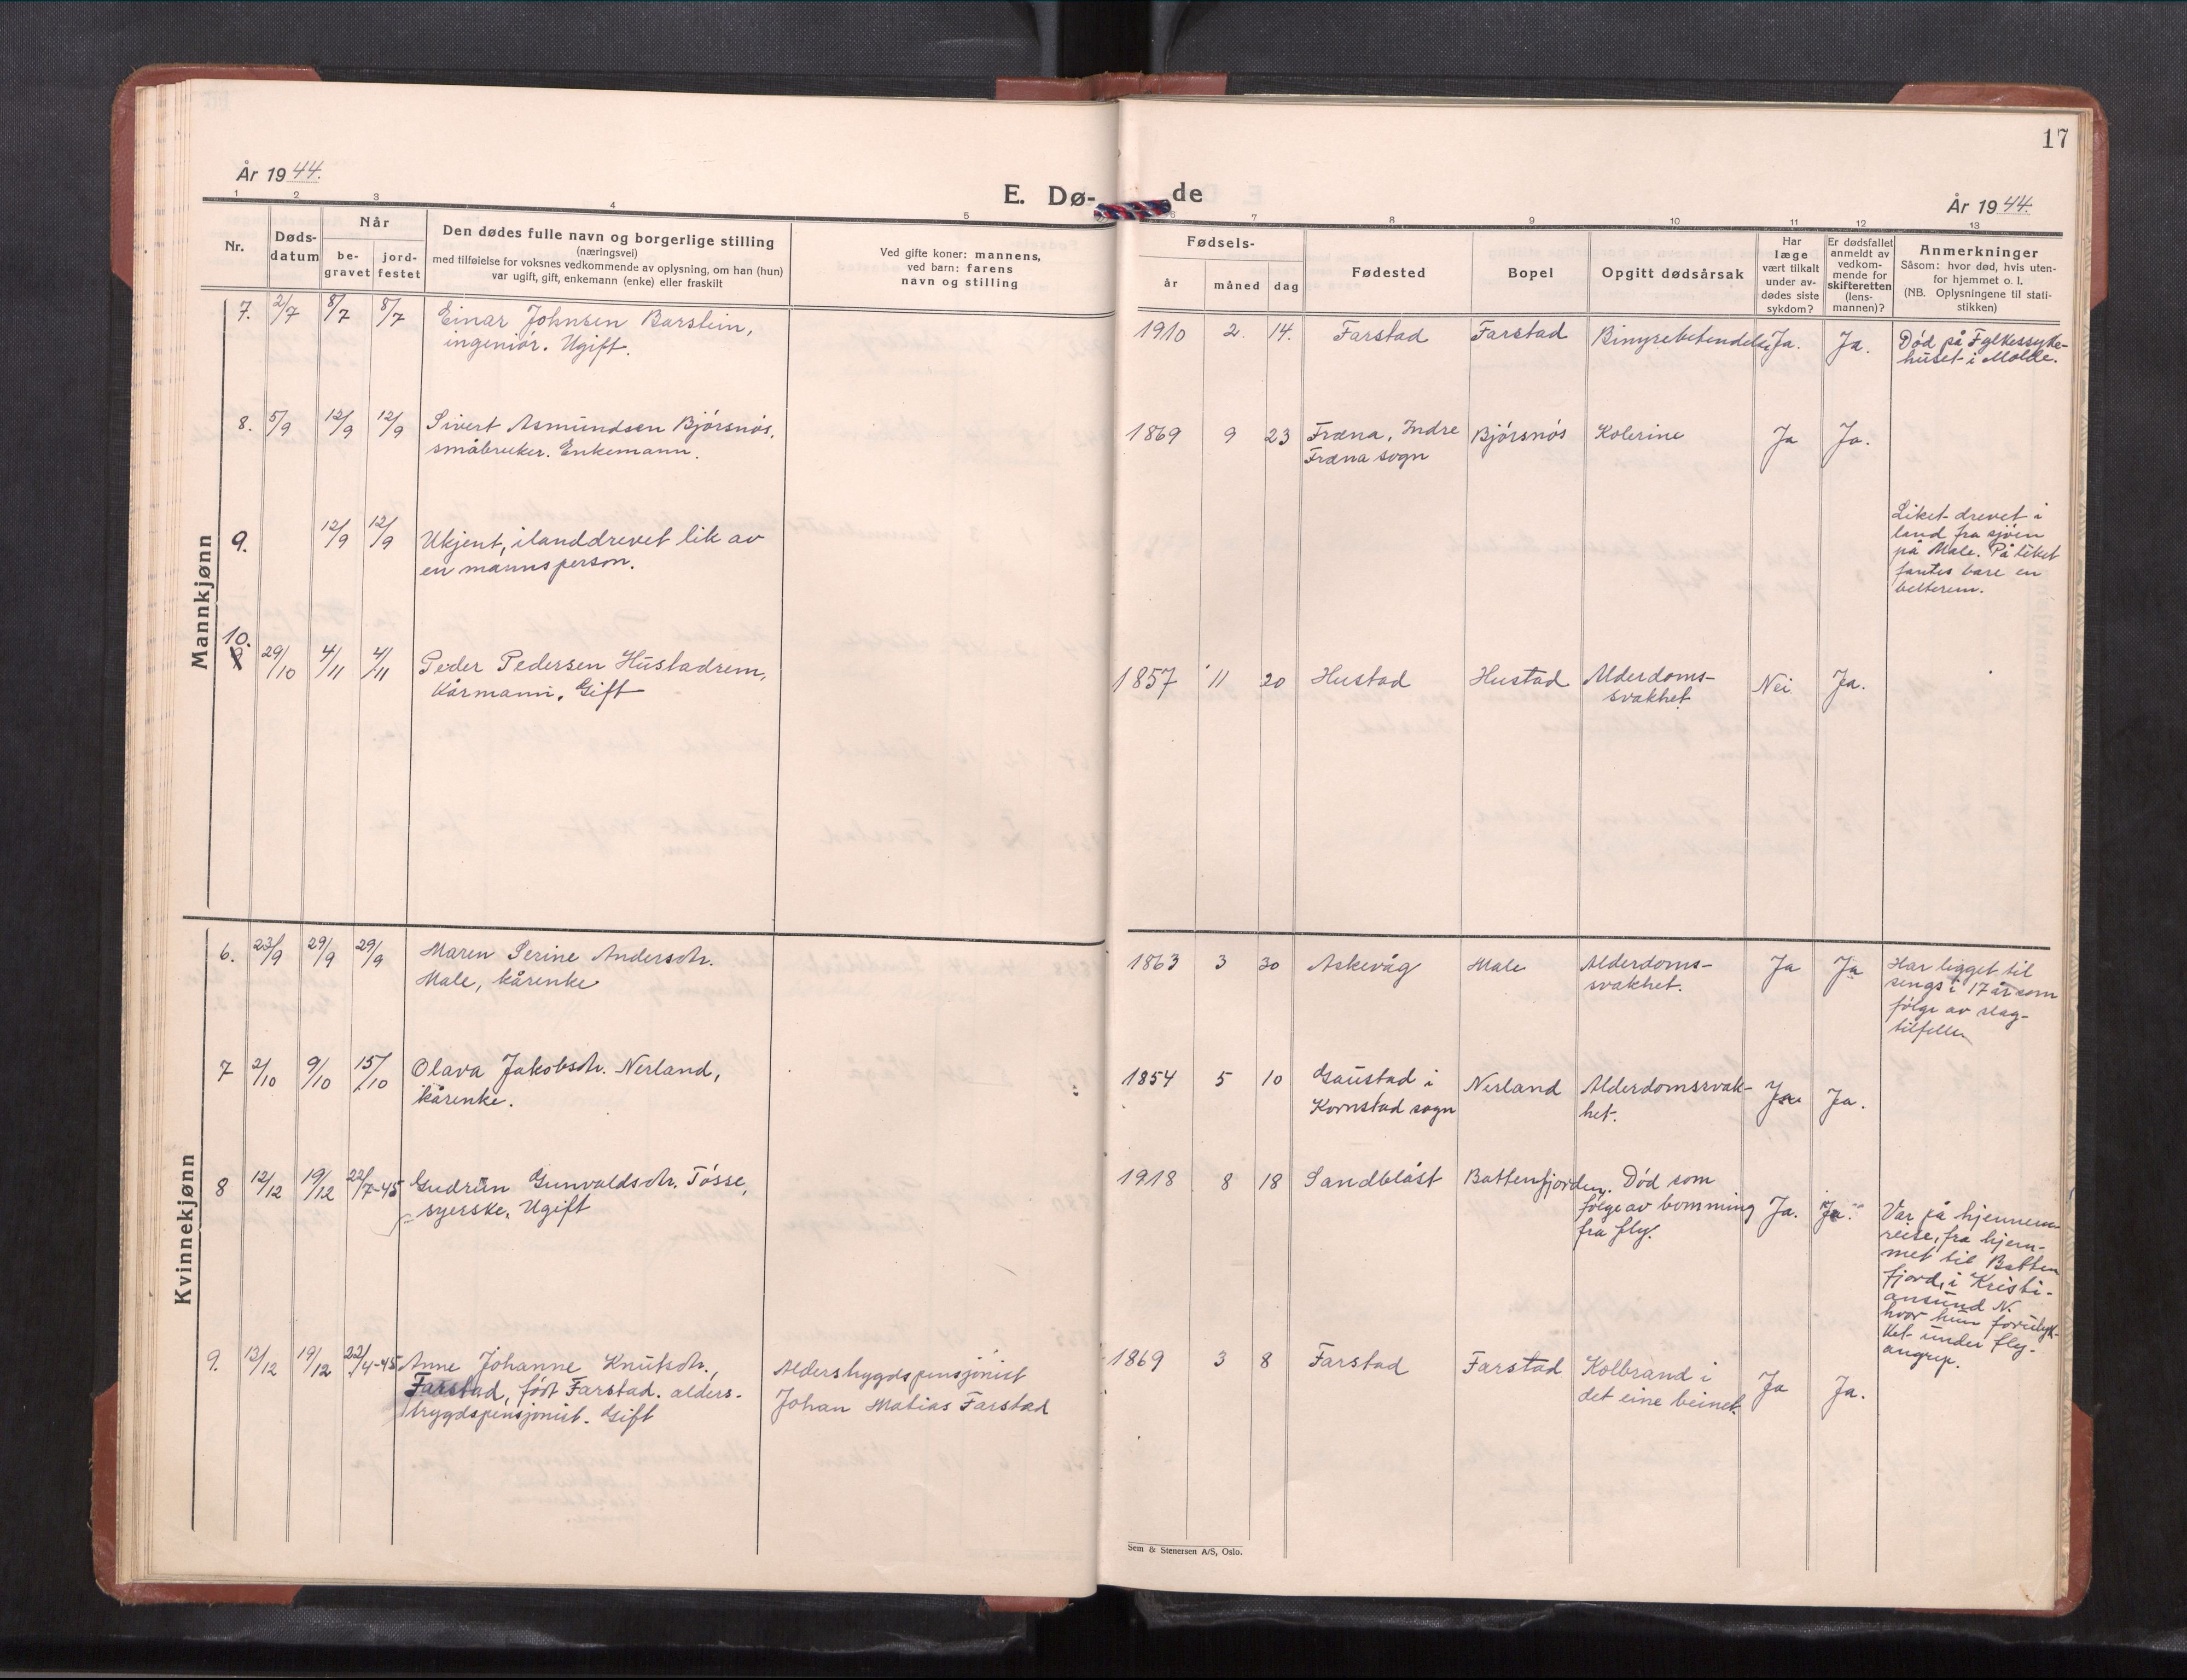 17
År 1944.
År 1944.
E. Dø- de
1 2 3 4 5 6 7 8 9 10 11 12 13
Nr.
Døds-
datum
Når
be-
gravet
jord-
festet
Den dødes fulle navn og borgerlige stilling
(næringsvei)
med tilføielse for voksnes vedkommende av oplysning, om han (hun)
var ugift, gift, enkemann (enke) eller fraskilt
Ved gifte koner: mannens,
ved barn: farens
navn og stilling
Fødsels-
år måned dag
Fødested
Bopel
Opgitt dødsårsak
Har
læge
vært tilkalt
under av-
dødes siste
sykdom?
Er dødsfallet
anmeldt av
vedkom-
mende for
skifteretten
(lens-
mannen)?
Anmerkninger
Såsom: hvor død, hvis uten-
for hjemmet o. l.
(NB. Oplysningene til stati-
stikken)
Mannkjønn
7. 2/7 8/7 8/7 Einar Johnsen Barstein,
ingeniør. Ugift.
1910 2. 14. Farstad Farstad Binyrebetendelse Ja. Ja.
Død på Fylkessyke-
huset i Molde.
8. 5/9 12/9 12/9 Sivert Asmundsen Bjørsnøs,
småbruker. Enkemann.
1869 9 23 Fræna, Indre
Fræna sogn
Bjørsnøs Kolerine Ja Ja.
9. 12/9 12/9 Ukjent, ilanddrevet lik av
en mannsperson.
Liket drevet i
land fra sjøen
på Male. På liket
fantes bare en
belterem.
10.
9 29/10 4/11 4/11 Peder Pedersen Hustadrem,
Kårmann. Gift
1857 11 20 Hustad Hustad Alderdoms-
svakhet
Nei Ja.
Kvinnekjønn
6. 23/9 29/9 29/9 Maren Serine Andersdtr.
Male, kårenke
1863 3 30 Askevåg Male Alderdoms-
svakhet.
Ja Ja
Har ligget til
sengs i 17 år som
følge av slag-
tilfelle
7 2/10 9/10 15/10 Olava Jakobsdtr. Nerland,
kårenke.
1854 5 10 Gaustad i
Kornstad sogn
Nerland Alderdomssvak-
het.
Ja. Ja.
8 12/12 19/12 22/7-45 Gudrun Gunvaldsdtr. Tøsse,
syerske. Ugift
1918 8 18 Sandblåst Battenfjorden. Død som
følge av bomming
fra fly.
Ja. Ja.
Var på hjennem-
reise, fra hjem-
met til Batten
fjord, i Kristi-
ansund N.
hvor hun forulyk-
ket under fly-
angrep.
9. 13/12 19/12 22/4-45 Anne Johanne Knutsdtr.,
Farstad, født Farstad. alders-
trygdspensjonist. Gift
Alderstrygdspensjonist
Johan Matias Farstad
1869 3 8 Farstad Farstad Kolbrand i
det eine beinet.
Ja Ja.
Sem & Stenersen A/S, Oslo.